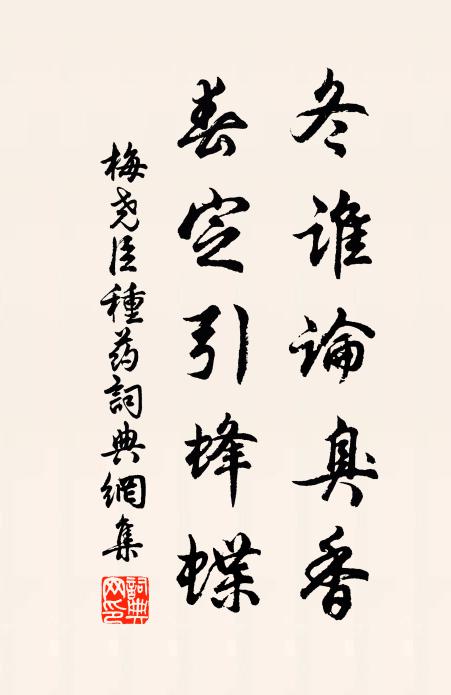 冬谁論臭香
春定引蜂蝶
梅尧臣種药詞典網集
詞典网印